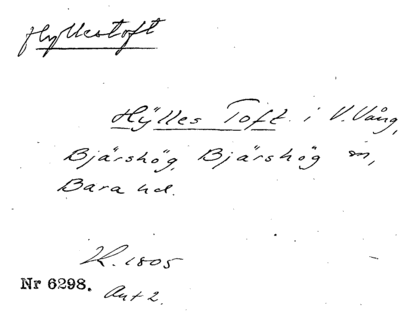 Hyllestoft
Hÿlles Toft i V. Vång,
Bjärshög, Bjärshög sn,
Bara hd.
K. 1805
Nr 6298. Ant 2.